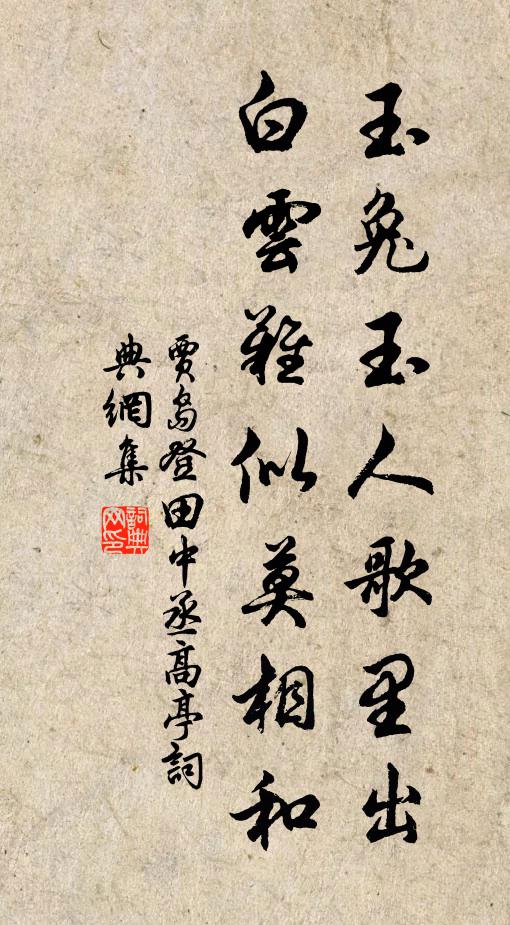 玉兔玉人歌里出
白雲難似莫相和
賈島登田中丞高亭詞
典網集
詞典網印